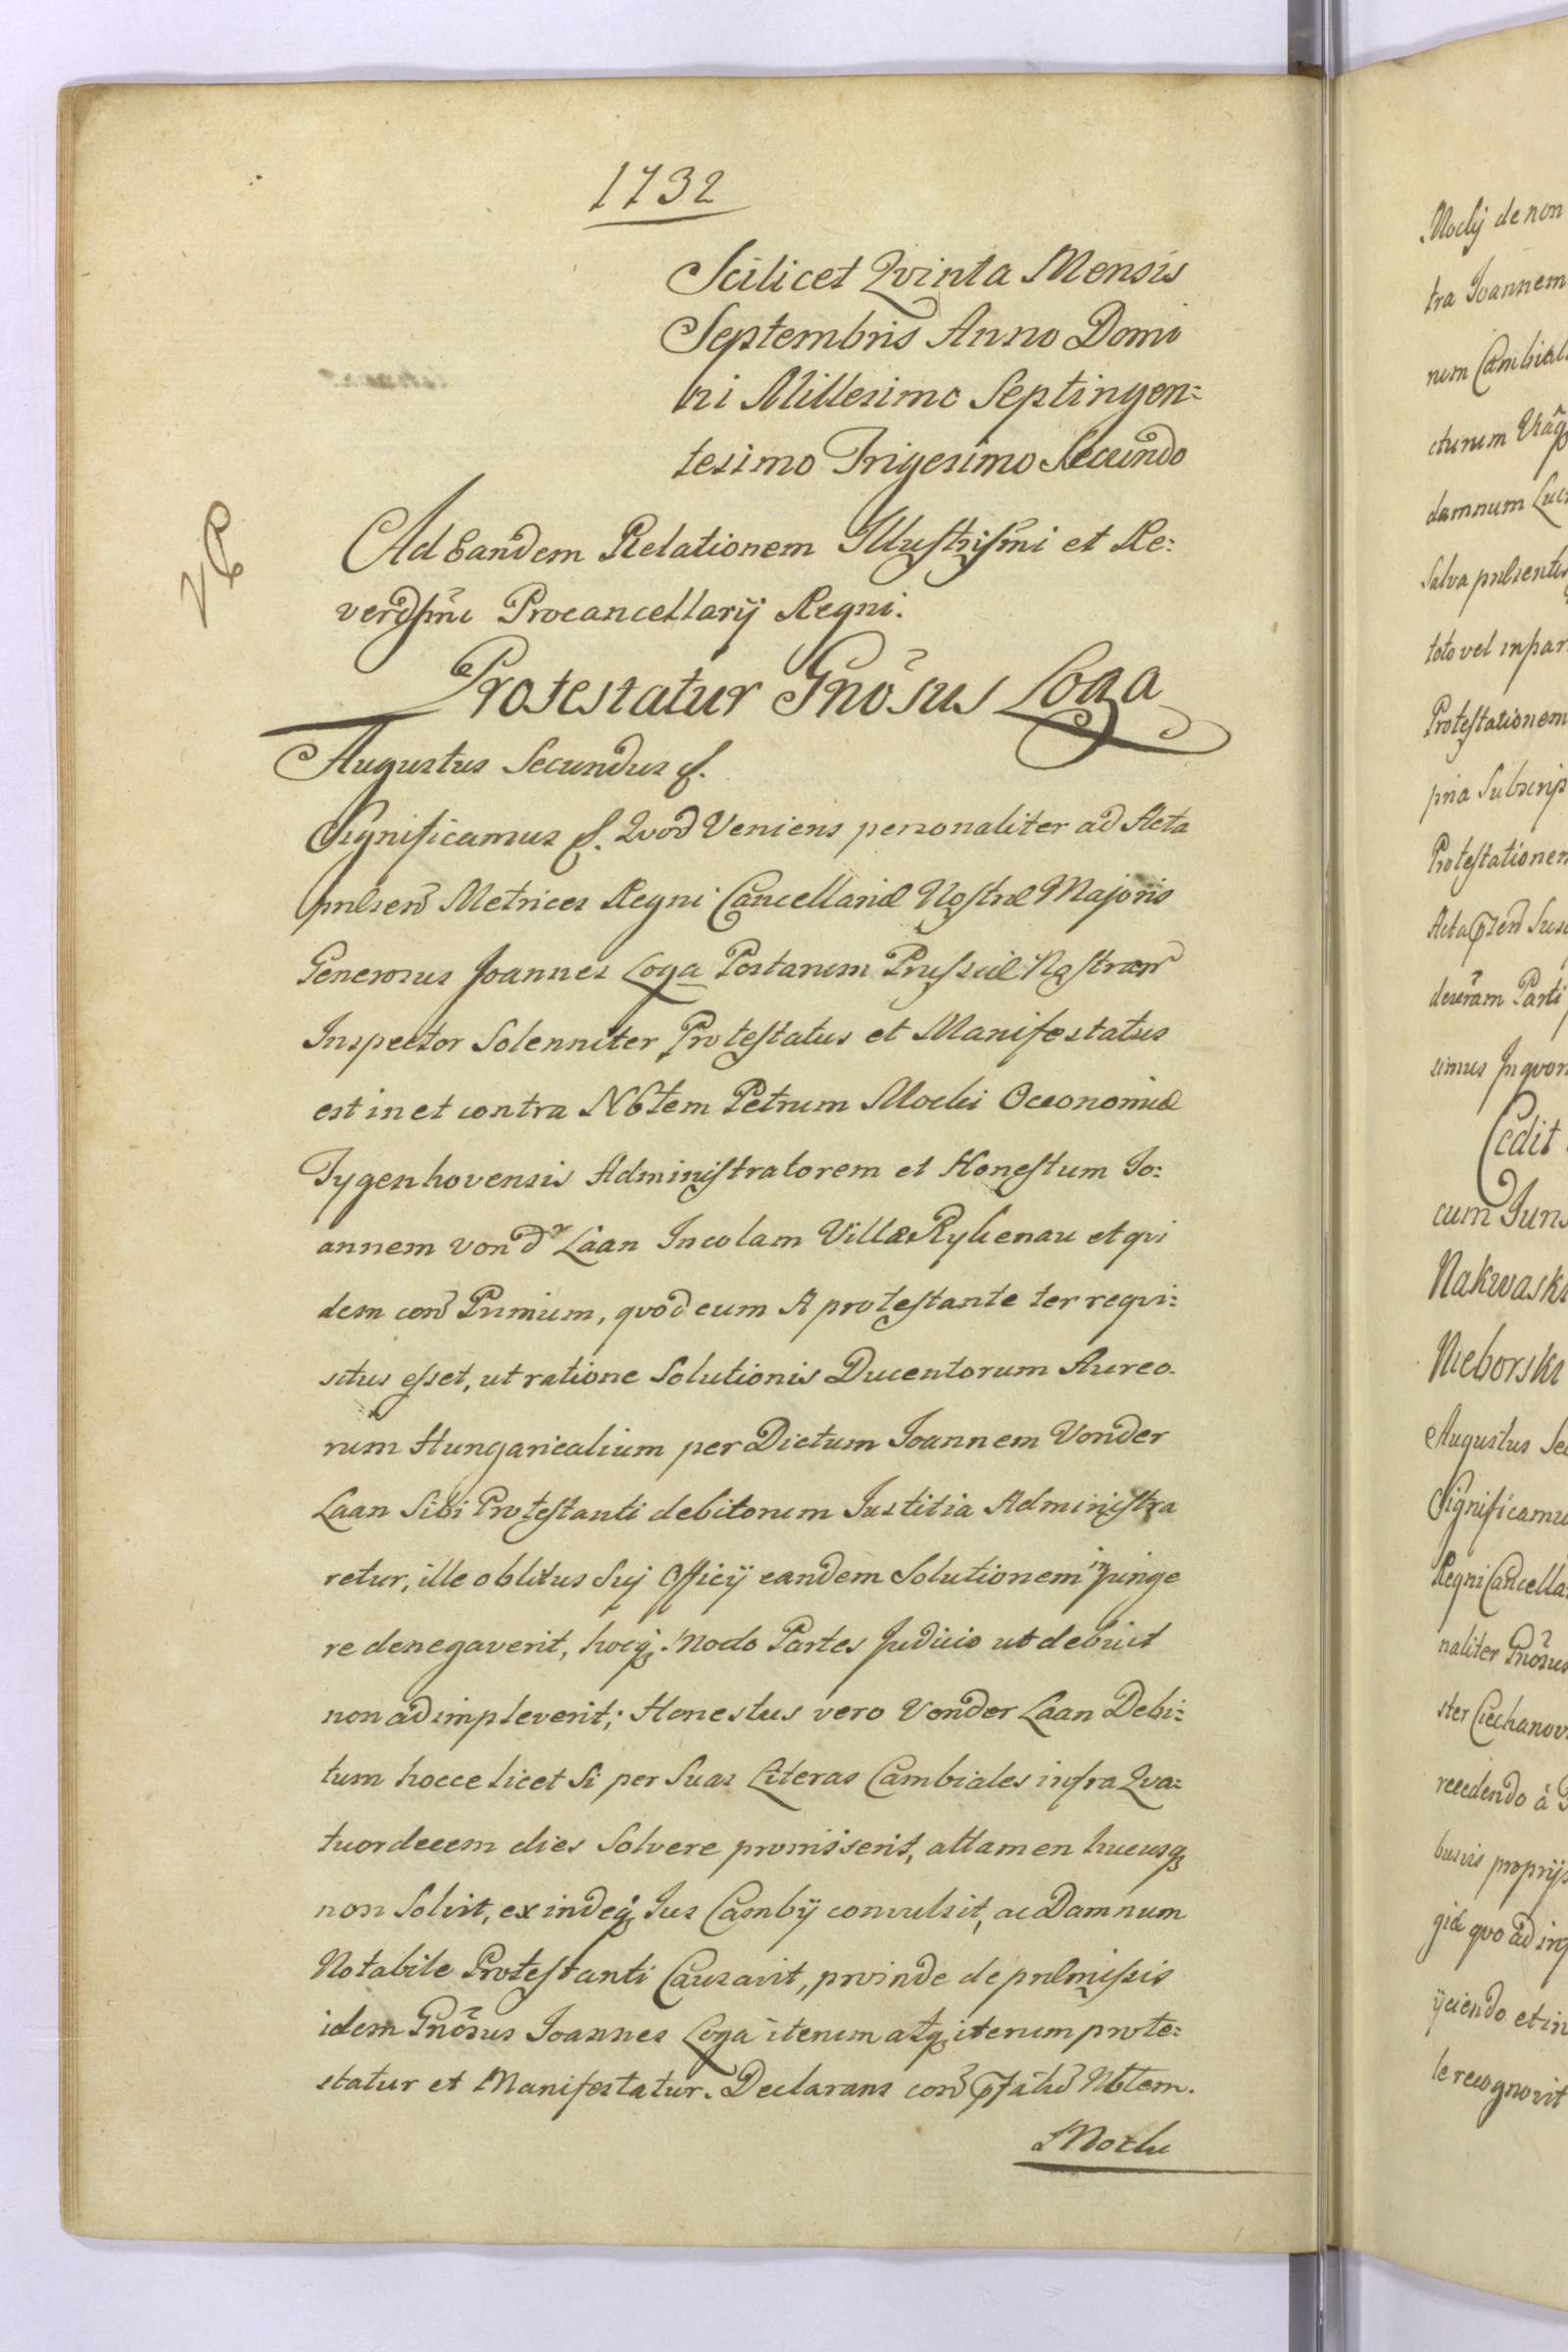 1732
Scilicet Qvinta Mensis
Septembris Anno Domi
ni Millesimo Septingen=
tesimo Trigesimo Secundo
Ad Eandem Relationem Illustrissmi et Re=
verdssmi Procancellarij Regni.
Protestatur Gnosus Loga
Augustus Secundus
Significamus Qvod Veniens personaliter ad Acta
Metrices Regni Cancellariæ Nostræ Majoris
Generosus Joannes Loga Postarum Prussiæ Nostrarum
Inspector Solenniter Protestatus et Manifestatus
est in et contra Nbtem Petrum Mochi Oeconomiæ
Tygenhovensis Administratorem et Honestum Jo=
annem von dr Laan Incolam Villæ et qvi
dem con Primum, qvod cum A protestante ter reqvi=
situs esset, ut ratione Solutionis Ducentorum Aureo
rum Hungaricalium per Dictum Joannem Vonder
Laan Sibi Protestanti debitorum Justitia Administra
retur, ille oblitus Suj Officij eandem Solutionem injunge
re denegaverit, hocq. Modo Partes Judicis ut debuit
non adimpleverit; Honestus vero Vonder Laan Debi=
tum hocce licet Si per Suas Literas Cambiales infra Qva=
tuordecem dies Solvere promiserit, attamen hucusq
non Solvit, ex indeq Jus Cambij convulsit, ac Damnum
Notabile Protestanti Causavit, proinde de præmissis
idem Gnosus Joannes Loga iterum atq iterum prote=
statur et Manifestatur. Declarans con Nbtem.
Mochi
Mochj de non
tra Joannem
num Cambial
cturum
damnum Luc
Salva
toto vel in par
Protestationem
pria Subscrip
Protestationem
Acta
Parti
simus In qvor
Cedit
cum Juns
Nakwaski
Nieborski
Augustus Se
Significamu
Regni Cancella
naliter Gnosus
ster Ciechanov
recedendo à
proprijs
giæ qvo ad in
ijciendo et in
le recognovit